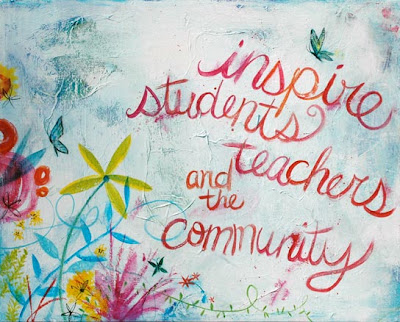 inspire
students
teachers
and
the
community